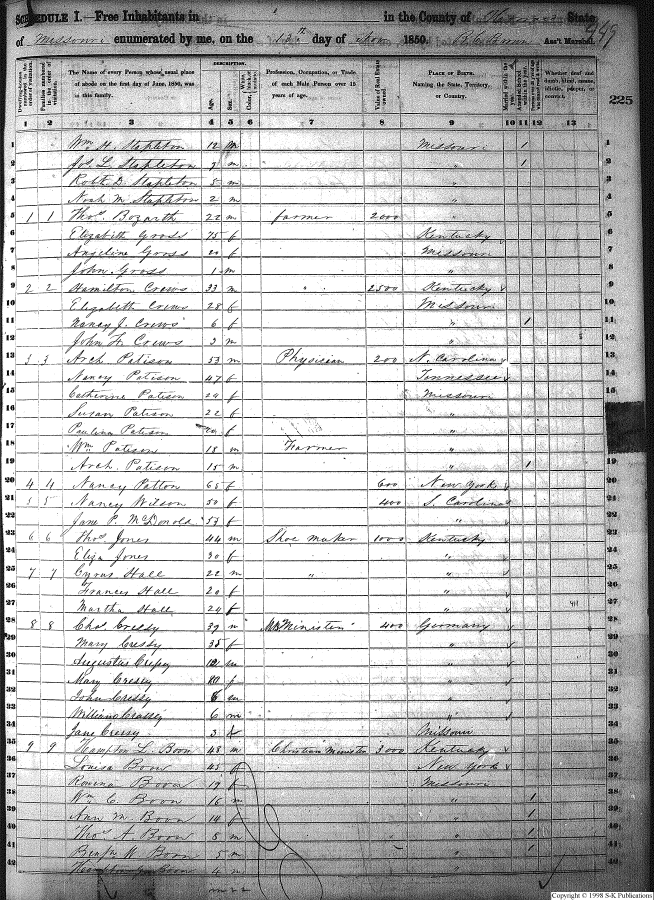 SCHEDULE I.—Free Inhabitants in in the County of State
of Missouri enumerated by me, on the 13th day of Nov 1850. Ass't Marshal.
225
DESCRIPTION.
The Name of every Person whose usual place of abode on the first day of June, 1850, was in this family.
Age. Sex.
Profession, Occupation, or Trade of each Male Person over 15 years of age.
Value of Real Estate owned.
PLACE OF BIRTH. Naming the State, Territory, or Country.
Whether deaf and dumb, blind, insane, idiotic, pauper, or convict.
1 2 3 4 5 6 7 8 9 10 11 12 13
1 Wm H. Stapleton 12 m Missouri 1 1
2 Jos L Stapleton 7 m " 1 2
3 Robt. D. Stapleton 5 m " 3
4 Noah M Stapleton 2 m " 4
5 1 1 Thos. Bozarth 22 m Farmer 2000 " 5
6 Elizabeth Gross 75 f Kentucky 6
7 Angeline Gross 20 f Missouri 7
8 John Gross 1 m " 8
9 2 2 Hamilton Crews 33 m " 2500 Kentucky 9
10 Elizabeth Crews 28 f Missouri 10
11 Nancy J. Crews 6 f " 1 11
12 John H. Crews 3 m " 12
13 3 3 Arch Patison 53 m Physician 200 N. Carolina 13
14 Nancy Patison 47 f Tennessee 14
15 Catherine Patison 24 f Missouri 15
16 Susan Patison 22 f " 16
17 Paulina Patison 20 f " 17
18 Wm Patison 18 m Farmer " 18
19 Arch. Patison 15 m " 1 19
20 4 4 Nancy Patton 65 f 600 New York 20
21 5 5 Nancy Wilson 50 f 400 S. Carolina 21
22 Jane P. McDonold 57 f " 22
23 6 6 Thos Jones 44 m Shoe maker 1000 Kentucky 23
24 Eliza Jones 30 f " 24
25 7 7 Cyrus Hall 22 m " " 25
26 Frances Hall 20 f " 26
27 Martha Hall 24 f " 27
28 8 8 Chas Cressy 39 m Minister 400 Germany 28
29 Mary Cressy 35 f " 29
30 Augustus Cressy 12 m " 30
31 Mary Cressy 10 f " 31
32 John Cressy 8 m " 32
33 William Crassy 6 m " 33
34 Jane Cressy 3 f Missouri 34
35 9 9 Hampton L. Boon 48 m Christian Minister 3000 Kentucky 35
36 Louisa Boon 45 f New York 36
37 Rowena Boon 17 f Missouri 37
38 Wm C Boon 16 m " 1 38
39 Ann M. Boon 14 f " 1 39
40 Thos A. Boon 8 m " 1 40
41 Benj W Boon 5 m " 1 41
42 Hampton Boon 4 m " 42
m 22
Copyright © 1998 S-K Publications